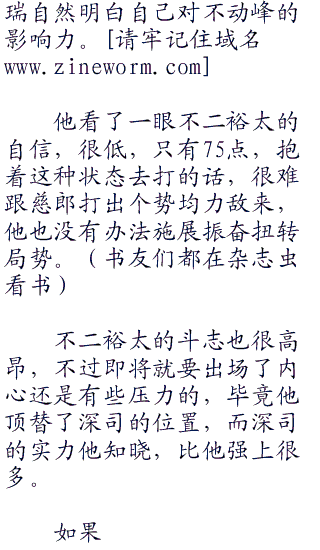 瑞自然明白自己对不动峰的
影响力。[请牢记住域名
www.zineworm.com]
他看了一眼不二裕太的
自信，很低，只有75点，抱
着这种状态去打的话，很难
跟慈郎打出个势均力敌来，
他也没有办法施展振奋扭转
局势。（书友们都在杂志虫
看书）
不二裕太的斗志也很高
昂，不过即将就要出场了内
心还是有些压力的，毕竟他
顶替了深司的位置，而深司
的实力他知晓，比他强上很
多。
如果